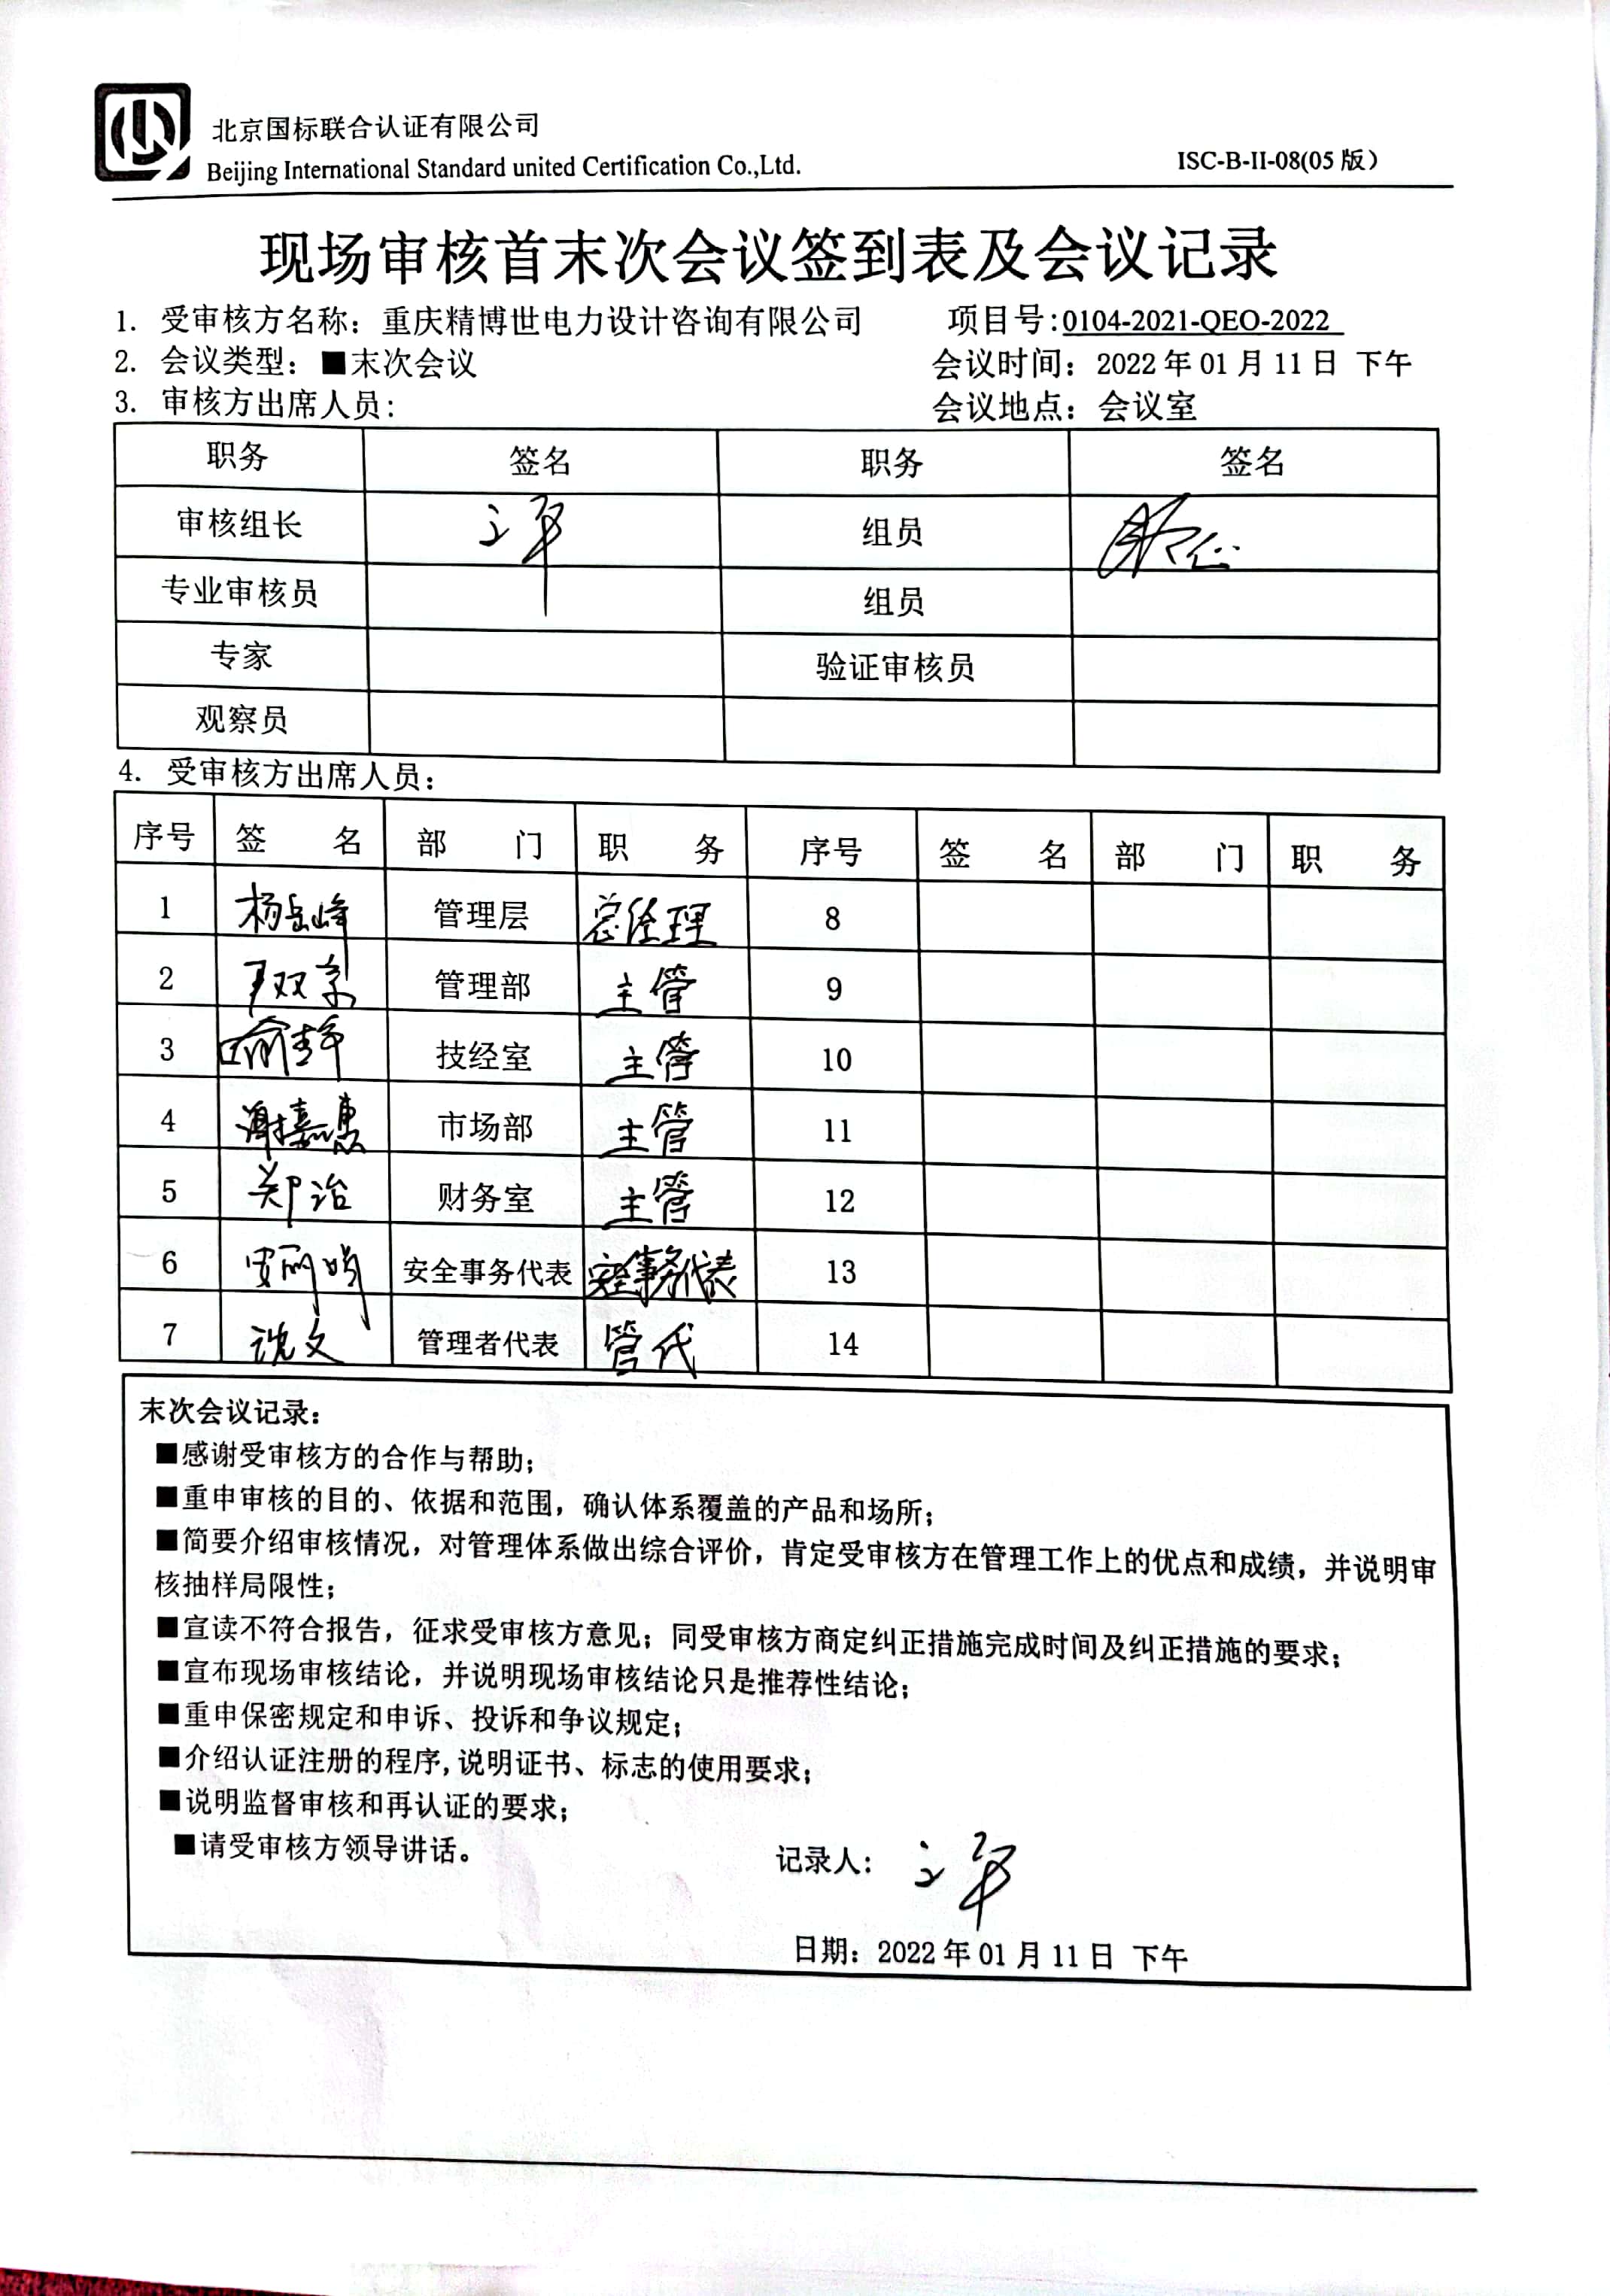 北京国标联合认证有限公司
Beijing International Standard united Certification Co.,Ltd.
ISC-B-II-08(05版)
现场审核首末次会议签到表及会议记录
1. 受审核方名称：重庆精博世电力设计咨询有限公司 项目号:0104-2021-QEO-2022
2. 会议类型：■末次会议 会议时间：2022年01月11日 下午
3. 审核方出席人员： 会议地点：会议室
职务 签名 职务 签名
审核组长 组员
专业审核员 组员
专家 验证审核员
观察员
4. 受审核方出席人员：
序号 签 名 部 门 职 务 序号 签 名 部 门 职 务
1 杨岳峰 管理层 总经理 8
2 管理部 主管 9
3 技经室 主管 10
4 谢嘉惠 市场部 主管 11
5 郑治 财务室 主管 12
6 安全事务代表 安全事务代表 13
7 沈文 管理者代表 管代 14
末次会议记录：
■感谢受审核方的合作与帮助；
■重申审核的目的、依据和范围，确认体系覆盖的产品和场所；
■简要介绍审核情况，对管理体系做出综合评价，肯定受审核方在管理工作上的优点和成绩，并说明审
核抽样局限性；
■宣读不符合报告，征求受审核方意见；同受审核方商定纠正措施完成时间及纠正措施的要求；
■宣布现场审核结论，并说明现场审核结论只是推荐性结论；
■重申保密规定和申诉、投诉和争议规定；
■介绍认证注册的程序,说明证书、标志的使用要求；
■说明监督审核和再认证的要求；
■请受审核方领导讲话。
记录人：
日期：2022年01月11日 下午